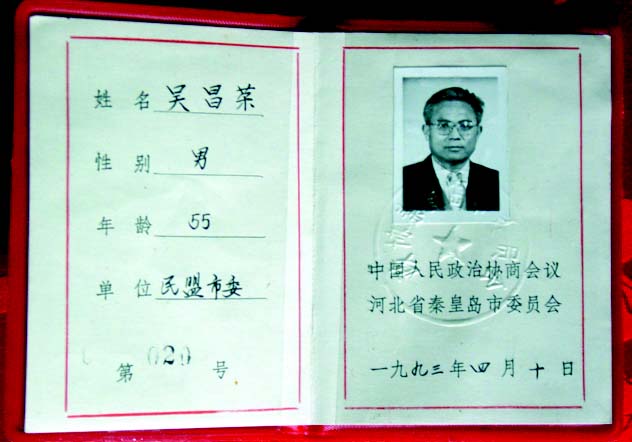 姓名 吴昌荣
性别 男
年龄 55
单位 民盟市委
第 020 号
中国人民政治协商会议
河北省秦皇岛市委员会
一九九三年四月十日